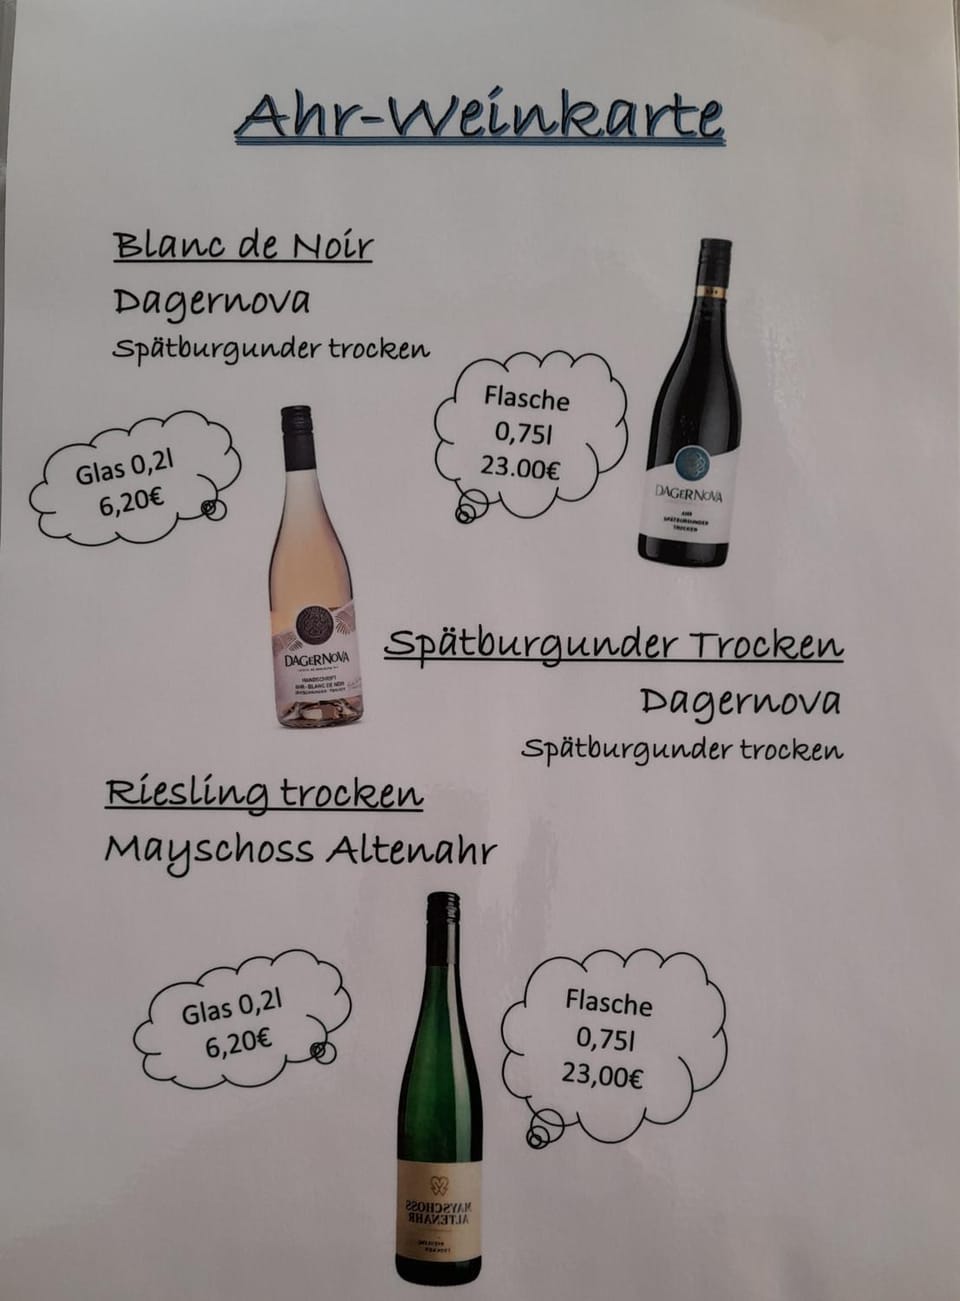 Ahr-Weinkarte
Blanc de Noir
Dagernova
Spätburgunder trocken
Glas 0,2l
6,20€
Flasche
0,75l
23.00€
DAGERNOVA
AHR
SPÄTBURGUNDER
TROCKEN
DAGERNOVA
HANDSCHRIFT
AHR · BLANC DE NOIR
Spätburgunder Trocken
Dagernova
Spätburgunder trocken
Riesling trocken
Mayschoss Altenahr
Glas 0,2l
6,20€
Flasche
0,75l
23,00€
MAYSCHOSS
ALTENAHR
RIESLING
TROCKEN